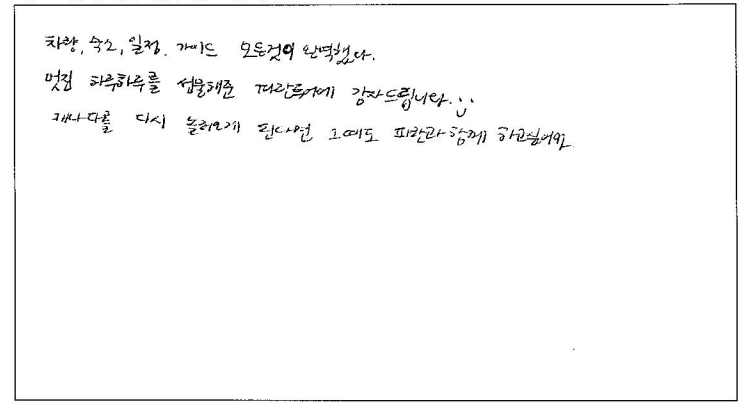 차량, 숙소, 일정, 가이드 모든것이 완벽했다.
멋진 하루하루를 선물해준 파란투어에 감사드립니다. :)
캐나다를 다시 놀러오게 된다면 그때도 파란과 함께 하고싶어요